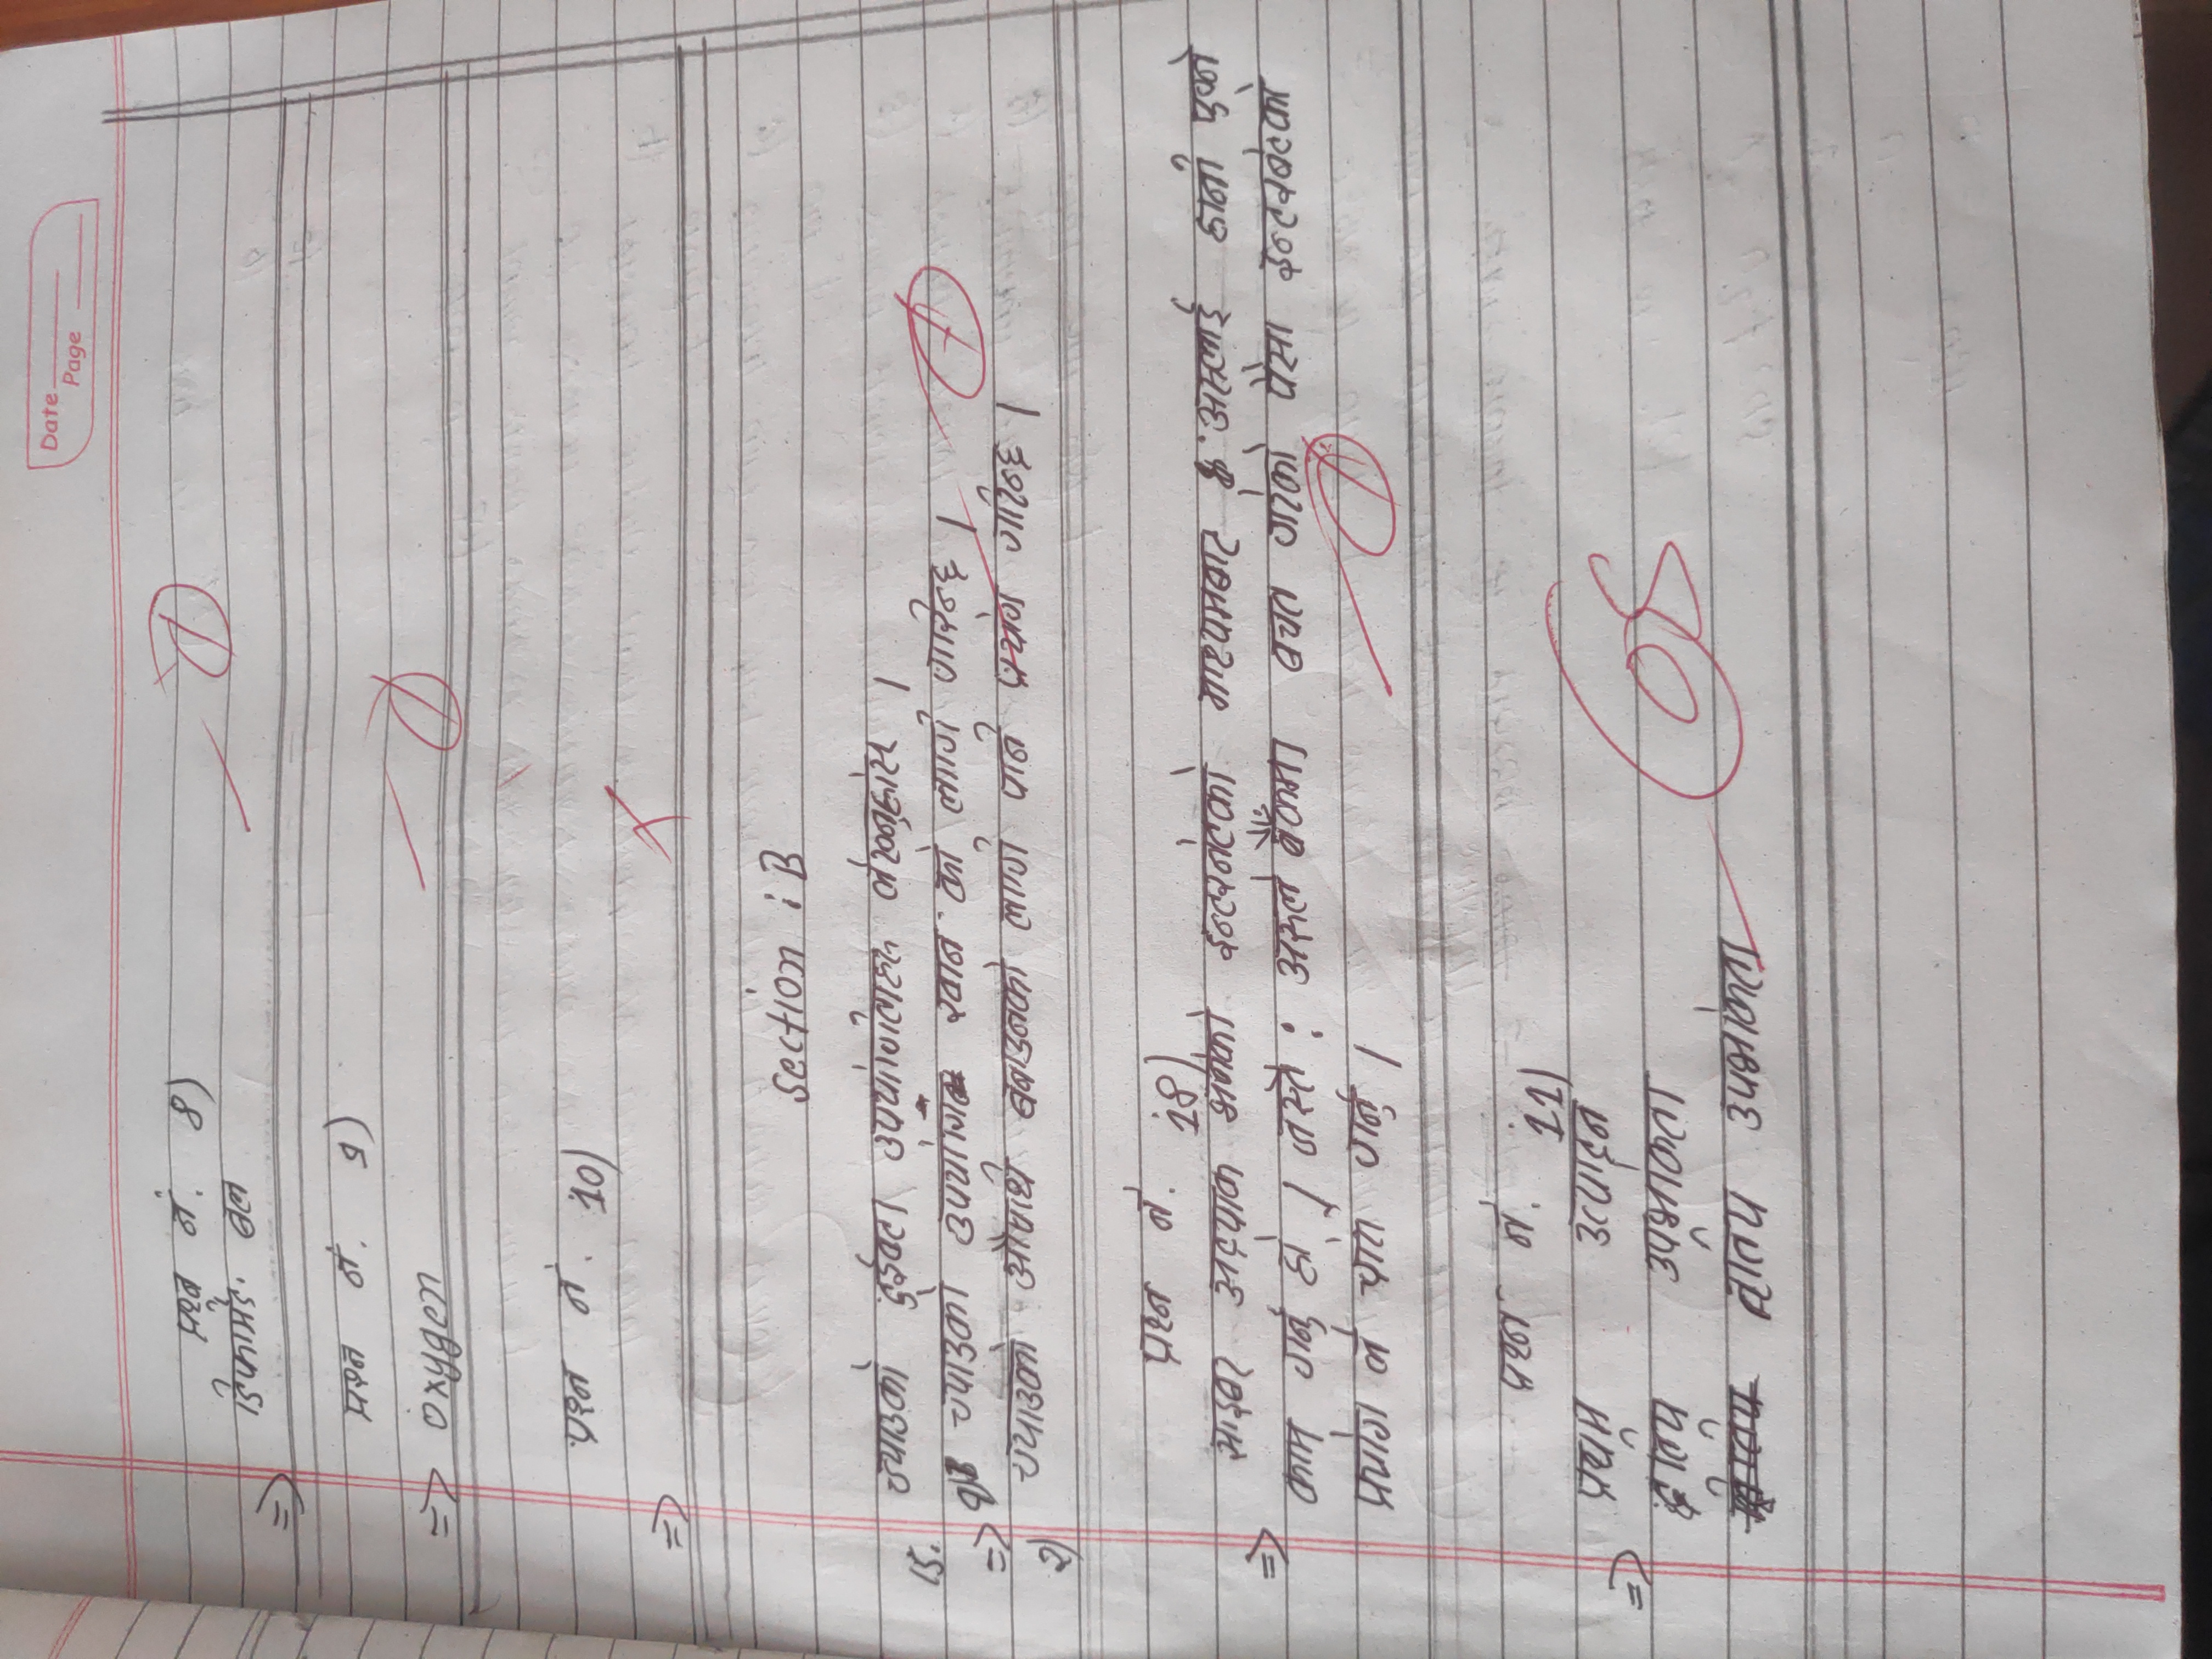 Date
Page
प्रश्न नं. 8)
=> डिफार्मेड. बल
1
प्रश्न नं. 9)
=> oxygen
1
प्रश्न नं. 10)
=>
section : B
15. च्याउको दुईवटा उपयोगिताहरु लेख्नुहोस् ।
=> १) च्याउको उपयोगि खान को लागि गरिन्छ ।
1
२) च्याउको औषधि बनाउनको लागि पनि प्रयोग गरिन्छ ।
प्रश्न नं. 18)
=> साइबर अट्याक भनेको इन्टरनेटको माध्यमबाट अरुलाई हानी पुग्ने
काम गर्नु हो । जस्तै : अरुले बैँकमा बचत गरेको पैसा इन्टरनेटको
प्रयोग ले चोरी गर्नु ।
1
प्रश्न नं. 11)
=> प्रथम उत्पादन
द्वितिय उपभोक्ता
तृतिय उपभोक्ता